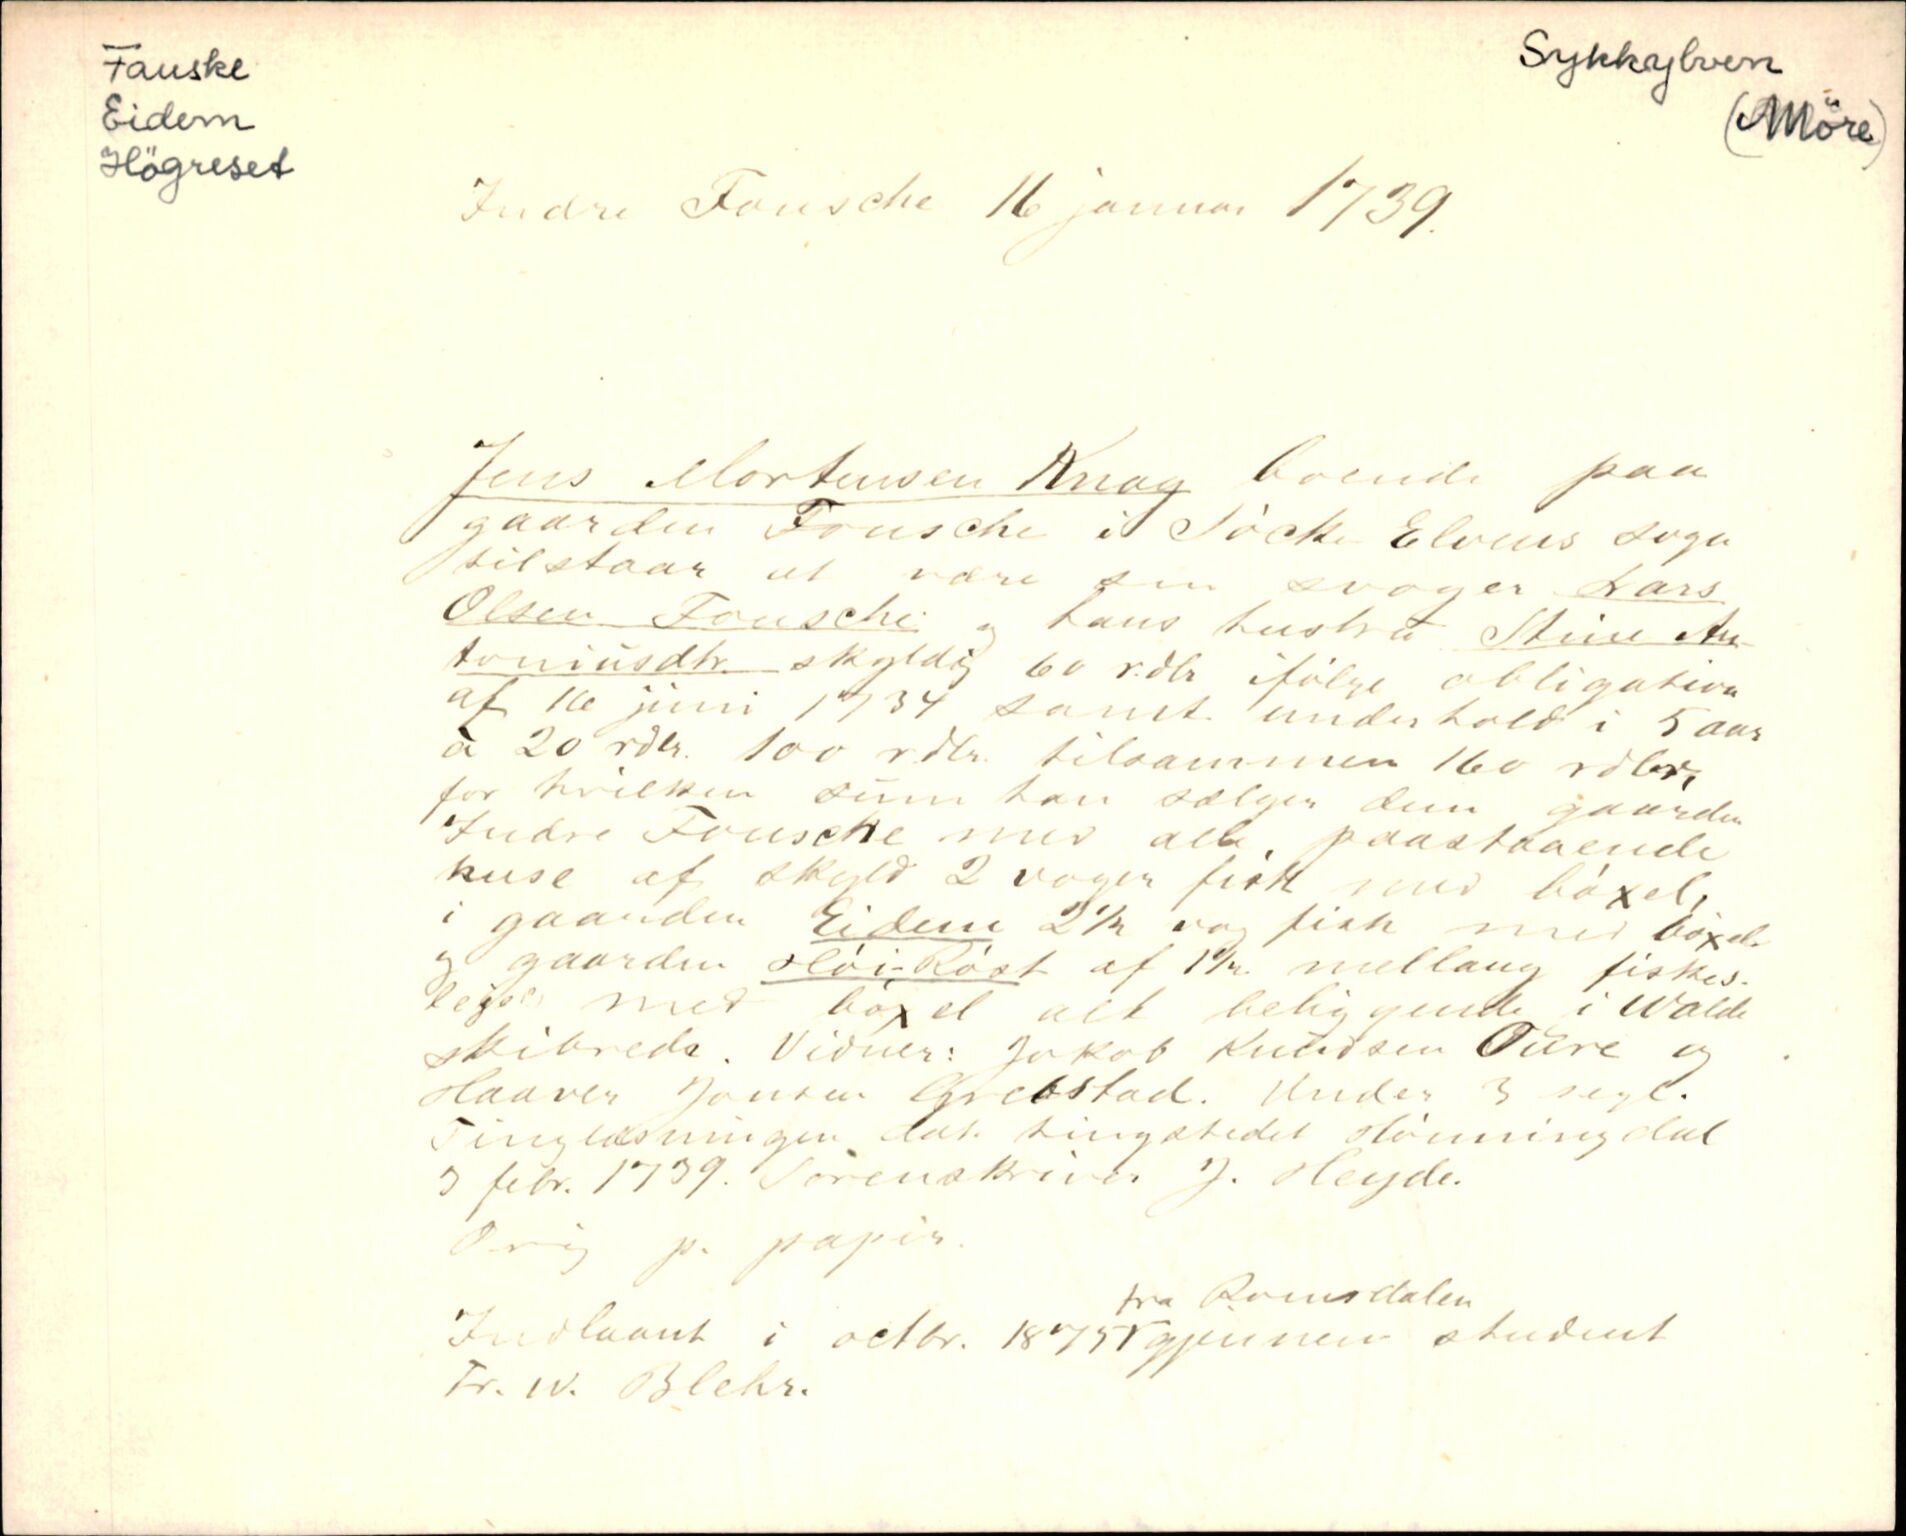 Fauske
Eidem
Högreset
Sykkylven
(Möre)
Indre Fousche 16 januar 1739.
Jens Mortensen Knag boende paa
gaarden Fousche i Söcke Elvens sogn
tilstaar at være sin svoger Lars
Olsen Fousche og hans hustru Stine An-
toniusdtr. skyldig 60 rdlr ifölge obligation
af 16 juni 1734 samt underhold i 5 aar
à 20 rdlr. 100 rdlr. tilsammen 160 rdlr,
for hvilken sum han sælger dem gaarden
Indre Fousche med alle paastaaende
huse af skyld 2 voger fisk med böxel,
i gaarden Eidem 2 1/2 vog fisk med böxel
og gaarden Höi-Röst af 1 1/2 mellaug fiskes
leje med böxel alt beliggende i Walde
skibrede. Vidner: Jakob Knudsen Øure og
Haaver Jonsen Grebstad. Under 3 segl.
Tinglæsningen dat. tingstedet Hönningdal
3 febr. 1739. Sorenskriver J. Heyde.
Orig p. papir.
fra Romsdalen
Indlaant i octbr. 1875 gjennem student
Fr. W. Blehr.